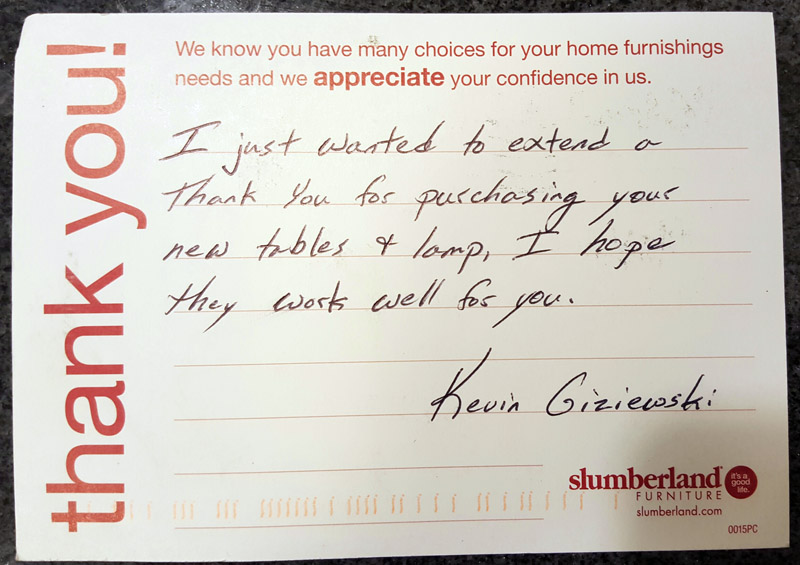 thank you!
We know you have many choices for your home furnishings
needs and we appreciate your confidence in us.
I just wanted to extend a
Thank You for purchasing your
new tables & lamp, I hope
they work well for you.
Kevin Giziewski
slumberland
FURNITURE
it's a
good
life.
slumberland.com
0015PC